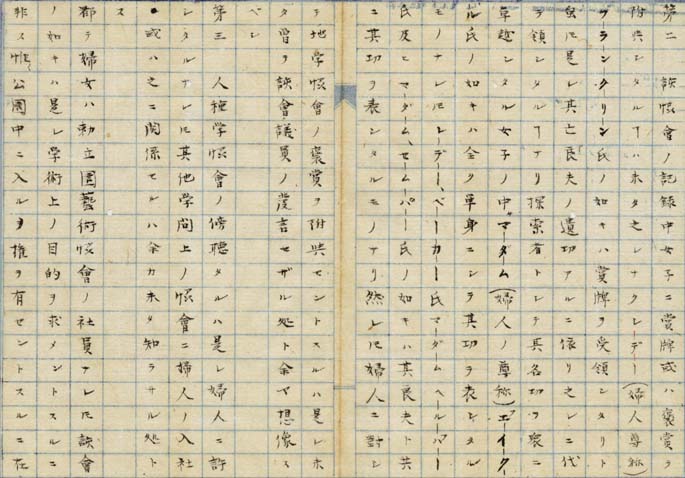 第二 該協會ノ記録中女子ニ賞牌或ハ褒賞ヲ
附與シタルヿハ未タ之レナクレデー(婦人尊称)
フランクリン氏ノ如キハ賞牌ヲ受領シタリト
虽𪜈是レ其亡良夫ノ遺功アルニ依リ之レニ代
ヲ領シタルヿアリ探索者トシテ其名功ヲ衆ニ
卓越シタル女子ノ中マーダム(婦人ノ尊称)エイーター
ル氏ノ如キハ全ク単身ニシテ其功ヲ表シタル
モノナレ𪜈レデー、ベーカー氏マーダムヘールーパー
氏及ヒマーダム、セームパー氏ノ如キハ其良夫ト共
ニ其功ヲ表シタルモノアリ然レ𪜈婦人ニ對シ
テ地学協會ノ褒賞ヲ附與セントスルハ是レ未
タ曾テ該會議員ノ発言セザル処ト余ママ想像ス
第三 人種学協會ノ傍聴タルハ是レ婦人ニ許
シタルナレ𪜈其他学問上ノ協會ニ婦人ノ入社
或ハ之ニ関係セルハ余カ未タ知ラサル処ト
ス
都テ婦女ハ勅立園藝術協會ノ社員アレ𪜈該會
ノ如キハ是レ学術上ノ目的ヲ求メントスルニ
非ス惟公園中ニ入ルヲ権ヲ有セントスルニ在